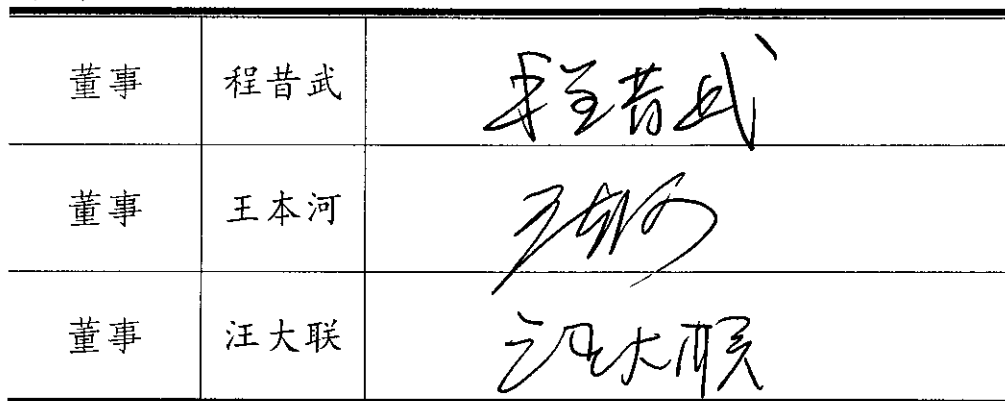 董事 程昔武 程昔武
董事 王本河 王本河
董事 汪大联 汪大联